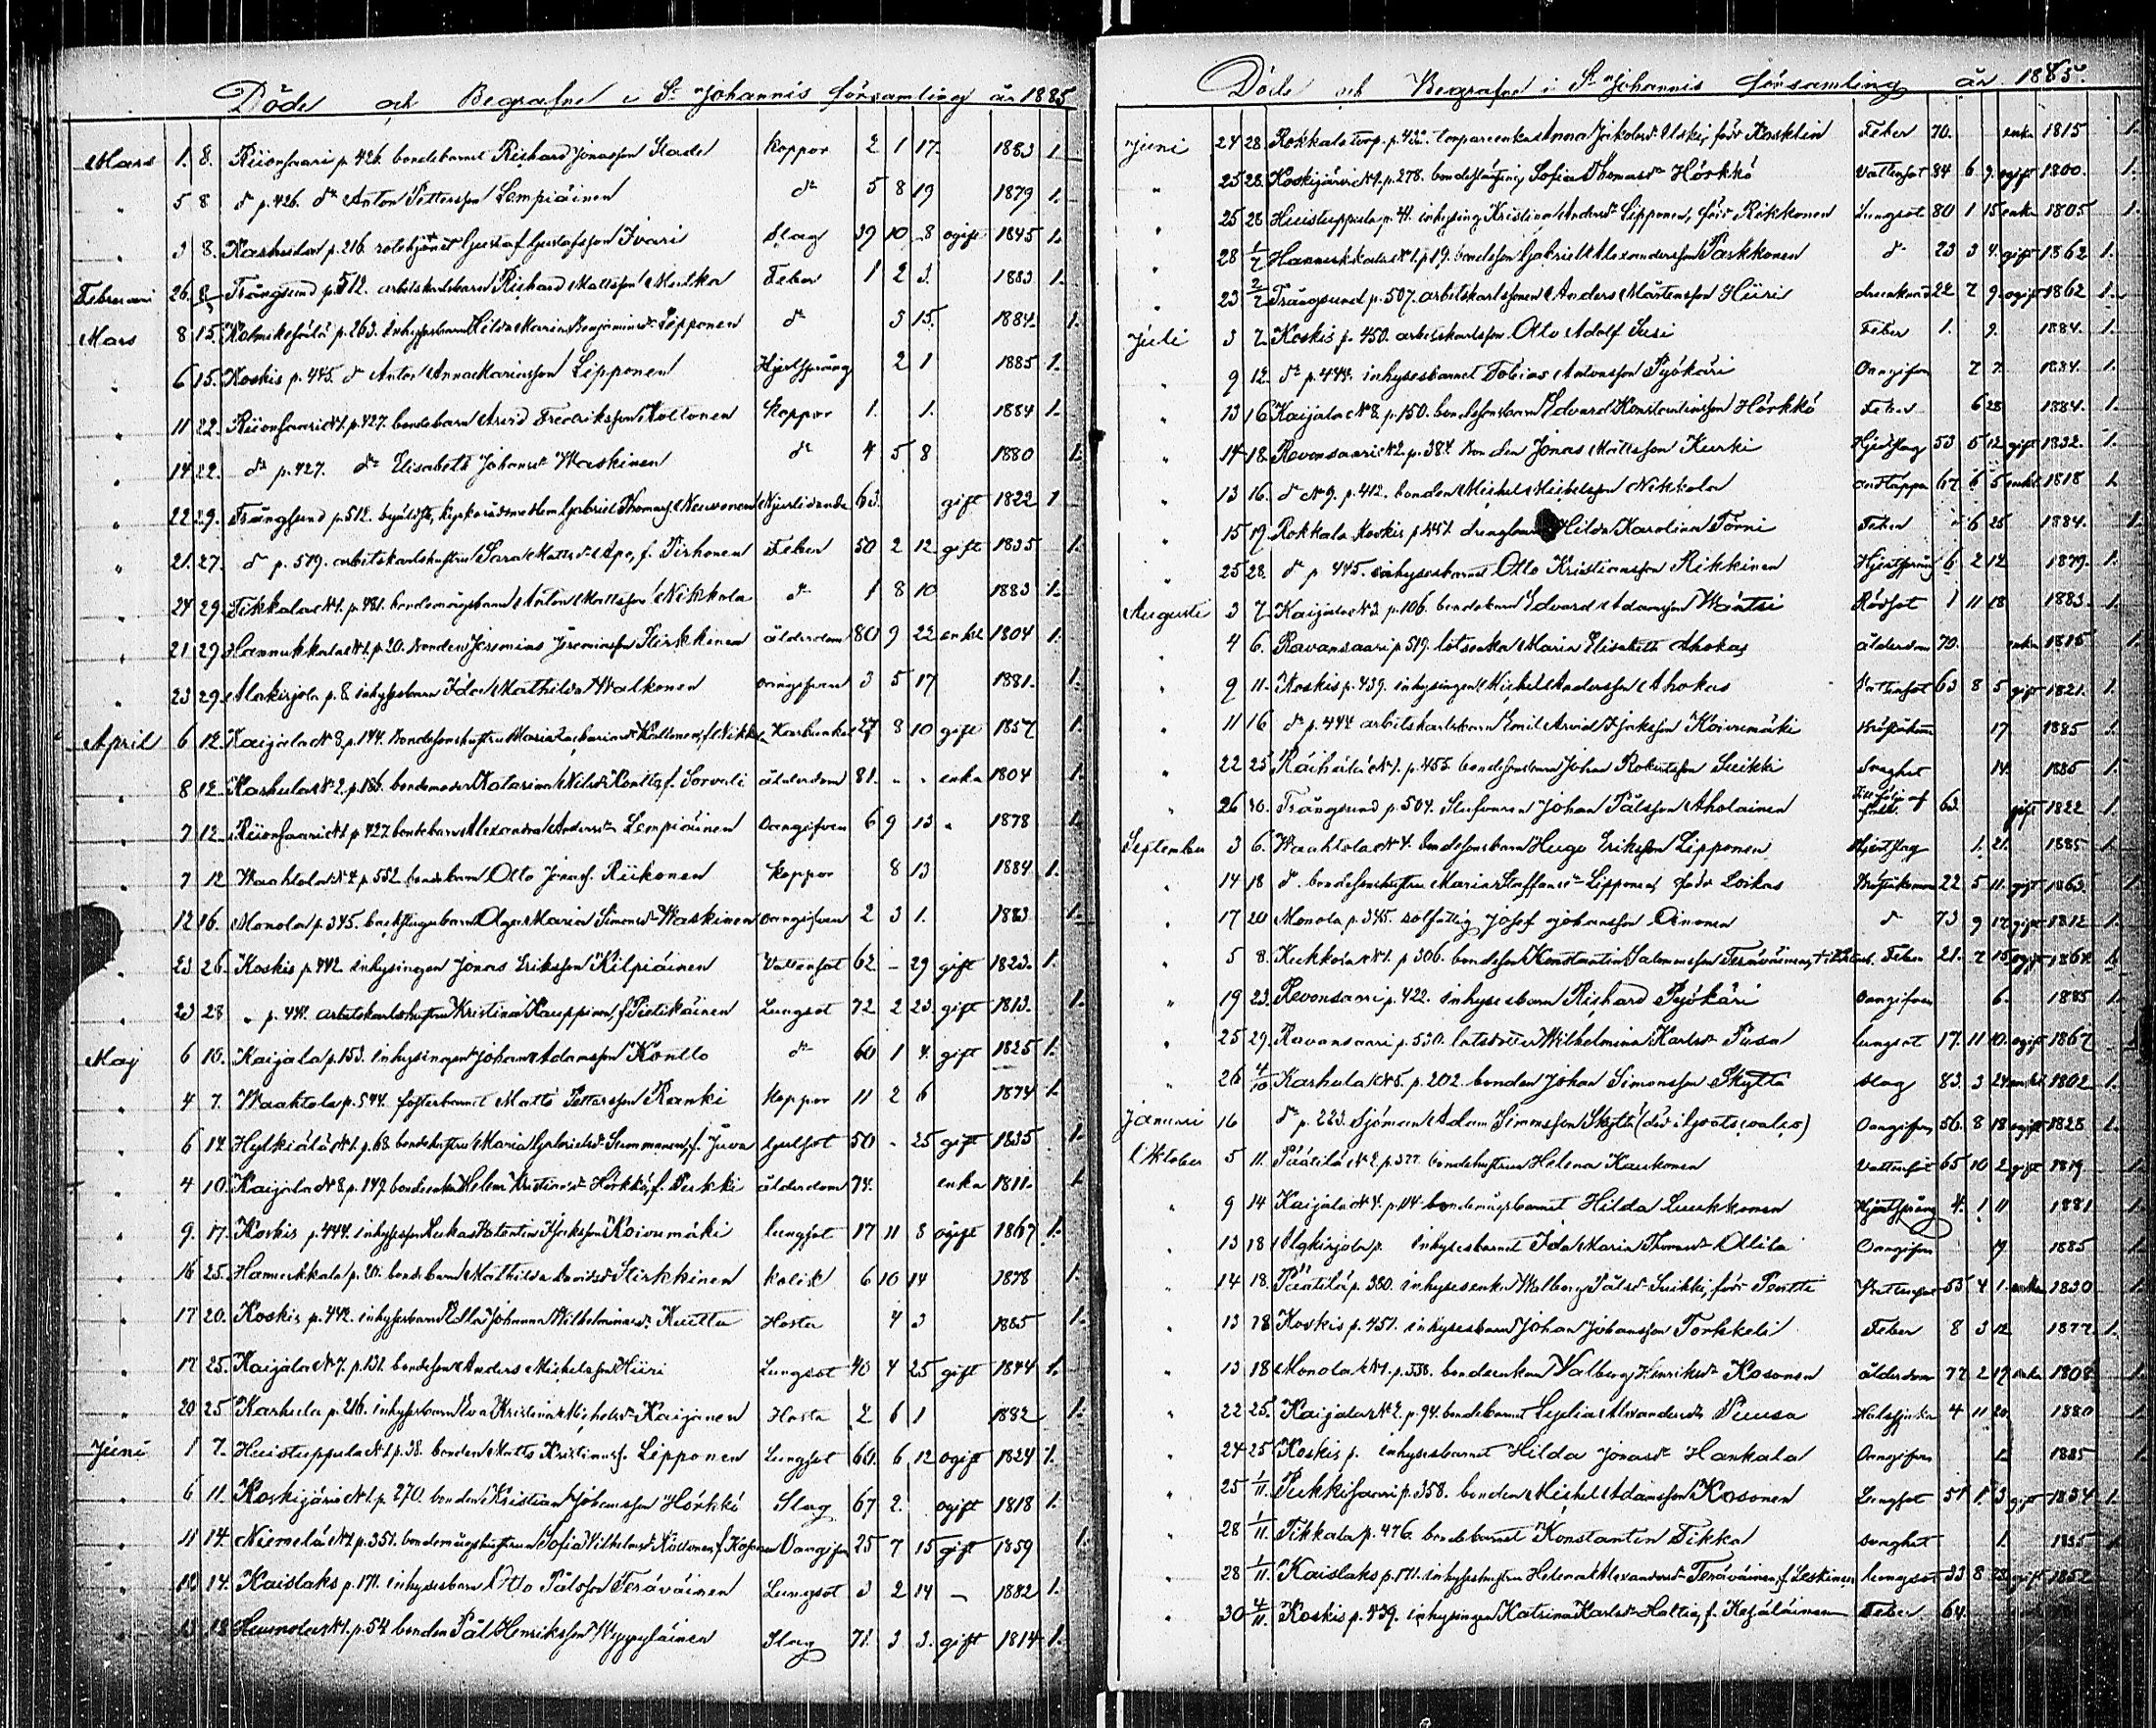 Döde och Begrafne i St Johannis församling år 1885
Mars 1. 8. Riionsaari p. 426. bondebarnet Rikhard Jonasson Stadel Koppor 2 1 17. 1883 1.
" 5 8 do p. 426. do Anton Pettersson Lempiäinen do 5 8 19 1879 1.
" 3 8. Karhula p. 216. Gustaf Gustafsson Ivari Slag 39 10 8 ogift 1845 1.
Februari 26. 8/3 Trångsund p. 512. arbetskarlsbarn Rikhard Mattsson Feber 1 2 3. 1883 1.
Mars 8 15. p. 263. inhysesbarn Hilda Maria Benjaminsdr Lipponen do 3 15. 1884. 1.
" 6 15. Koskis p. 445. do Anton Annamariasson Lipponen Hjertsprång 2 1 1885 1.
" 11 22. Riionsaari No 1. p. 427. bondebarn Arvid Fredriksson Koppor 1. 1. 1884 1.
" 14 22. do p. 427. do Elisabeth Johansdr Waskinen do 4 5 8 1880 1.
" 22 29. Trångsund p. 512. Gabriel Thomass. Neuvonen 63. gift 1822 1
" 21. 27. do p. 519. arbetskarlshustru Sara Mattsdr Apo, f. Pirhonen Feber 50 2 12 gift 1835 1.
" 24 29. Tikkala No 1. p. 481. bondemågsbarn Anton Mattsson Nikkola do 1 8 10 1883 1.
" 21 29 Hannukkala No 1. p. 20. bonden Jeremias Jeremiasson Stirkkinen ålderdom 80 9 22 enkl 1804 1.
" 23 29. Alakirjola p. 8 inhysesbarn Ida Mathilda Walkonen oangifven 3 5 17 1881. 1.
April 6 12. Kaijala No 8 p. 144. bondesonhustru Maria Zachariasdr f. Nikkola 27 8 10 gift 1857 1.
" 8 12 Karhula No 2. p. 186. bondemoder Katarina Nilsdr Kontto, f. Sorvali ålderdom 81. - - enka 1804 1.
" 7 12. Riionsaari No 1 p. 427. bondebarn Alexandra Andersdr Lempiäinen Oangifven 6 9 13 " 1878 1.
" 7 12 Waahtola No 4 p. 552 bondebarn Otto Jonass. Riikonen Koppor 8 13 1884 1.
" 12 16. Monola p. 345. Olga Maria Simonsdr Waskinen oangifven 2 3 1. 1883 1.
" 23 26. Koskis p. 442 inhysingen Jonas Eriksson Kilpiäinen Vattensot 62 - 29 gift 1823. 1.
" 23 28 " p. 441. arbetskarlshustru Kristina Kauppinen, f. Pietikäinen Lungsot 72 2 23 gift 1813. 1.
Maj 6 10. Kaijala p. 153. inhysingen Johan Adamsson Kontto do 60 1 4. gift 1825 1.
" 4 7. Waahtola p. 544. fosterbarnet Matts Pettersson Ranki Koppor 11 2 6 1874 1.
" 6 14 Hytkiälä No 1. p. 68. bondehustru Maria Gabrielsdr Summanen, f. Juva Gulsot 50 - 25 gift 1835 1.
" 4 10. Kaijala No 8 p. 149. bondeenka Helena Kristiansdr Hörkkö, f. Peukki ålderdom 74. enka 1811. 1.
" 9. 17. Koskis p. 444. inhysesson Lukas Konstantin Isaksson Koivumäki lungsot 17 11 8 ogift 1867 1.
" 16 25. Hannukkala p. 20. bondebarn Mathilda Davidsdr Stirkkinen kolik 6 10 14 1878 1.
" 17 20. Koskis p. 442. inhysesbarn Ella Johanna Wilhelminasdr Kuttu Hosta 4 3 1885 1.
" 17 25. Kaijala No 7. p. 132. bondeson Anders Mickelsson Hiiri Lungsot 40 4 25 gift 1844 1.
" 20 25 Karhula p. 216. inhysesbarn Eva Kristina Mickelsdr Kaijanen Hosta 2 6 1 1882 1.
Juni 1 7. Huistuppula No 1. p. 38. bonden Matts Kristianss. Lipponen Lungsot 60. 6 12 ogift 1824 1.
" 6 11. Koskijärvi No 1 p. 270. bonden Kristian Johansson Hörkkö Slag 67 2. ogift 1818 1.
" 11 14. Niemelä No 2 p. 351. bondemågshustrun Sofia Wilhelmsdr f. Kosonen Oangifven 25 7 15 gift 1859 1.
" 10 14. Kaislaks p. 171. inhysesbarn Otto Pålsson Teräväinen Lungsot 3 2 14 - 1882 1.
" 13 18 Huunola No 1. p. 54 bonden Pål Henriksson Slag 71. 3 3. gift 1814 1.
Döde och Begrafne i St Johannis församling år 1885.
Juni 24 28. Rokkala torp. p. 432. torpareenkan Anna Jakobsdr Uski, född Kosklin Feber 70. enka 1815 1.
" 25 28. Koskijärvi No 1. p. 278. bondeflicka Sofia Thomasdr Hörkkö Vattensot 84 6 9. ogift 1800. 1.
" 25 28 Huistuppula p. 41. inhysing Kristina Andersdr Lipponen, född Rikkonen Lungsot 80 1 15 enka 1805 1.
" 28 1/7 Hannukkala No 1. p. 19. bondeson Gabriel Alexandersson Paskkonen do 23 3 4. gift 1862 1.
" 23 2/7 Trångsund p. 507. arbetskarlssonen Anders Mårtensson Hiiri drunknad 22 7 9. ogift 1862 1.
Juli 3 7. Koskis p. 450. arbetskarlsson Otto Adolf Susi Feber 1. 9. 1884. 1.
" 9 12. do p. 444. inhysesbarnet Tobias Antonsson Pyökäri Oangifven 7 7. 1884. 1.
" 13 16. Kaijala No 8. p. 150. bondesonsbarn Edvard Konstantinsson Hörkkö Feber 6 28 1884. 1.
" 14 18. Revonsaari No 2. p. 384. bonden Jonas Mattsson Kurki Hjertslag 53 5 12 gift 1832. 1.
" 13 16. do No 9. p. 412. bonden Mickel Mickelsson Nikkola andtäppa 67 6 5 enkl 1818 1.
" 15 19. Rokkala Koskis p. 451. Hilda Karolina Torni Feber - 6 25 1884. 1.
" 25 28. do p. 445. inhysesbarnet Otto Kristiansson Rikkinen Hjertsprång 6 2 12 1879. 1.
Augusti 3 7. Kaijala No 3. p. 106. bondebarn Edvard Adamsson Wäntsi Rödsot 1 11 18 1883. 1.
" 4 6. Ravansaari p. 519. lotsenka Maria Elisabeth Ahokas ålderdom 70. enka 1815 1.
" 9 11. Koskis p. 439. inhysingen Mickel Andersson Ahokas Vattensot 63 8 5 gift 1821. 1.
" 11 16 do p. 444 arbetskarlsbarn Emil Arvid Isaksson Koivumäki 17. 1885 1.
" 22 25 Räihälä No 1. p. 455. bondesonsbarn Johan Robertsson Suikki Svaghet 14. 1885 1.
" 26 30. Trångsund p. 504. Johan Pålsson Aholainen 63. gift 1822 1.
September 3 6. Waahtola No 4. bondesonsbarn Hugo Eriksson Lipponen Hjertslag 1. 21. 1885 1.
" 14 18 do bondesonshustru Maria Staffansdr Lipponen, född Loikas 22 5 11. gift 1863. 1.
" 17 20 Monola p. 345. Josef Johansson Oinonen do 73 9 17 gift 1812 1.
" 5 8. Kukkola No 1. p. 306. bondeson Konstantin Salomonsson Teräväinen Feber 21. 7 15 ogift 1864. 1.
" 19 23. Revonsaari p. 422. inhysesbarn Rikhard Pyökäri oangifven 6. 1885 1.
" 25 29. Ravansaari p. 530. lotsdotter Wilhelmina Karlsdr Pusa lungsot 17. 11 10. ogift 1867 1
" 26 4/10 Karhula No 5. p. 202. bonden Johan Simonsson Skyttä slag 83. 3 24 enkl 1802 1.
Januari 16 do p. 223. Sjöman Adam Simonsson Skyttä Oangifven 56. 8 18 ogift 1828 1.
Oktober 5 11. Päätilä No 2. p. 377. bondehustrun Helena Kaukonen Vattensot 65 10 2 gift 1819
" 9 14 Kaijala No 4. p. 114 bondemågsbarnet Hilda Luukkonen Hjertsprång 4. 1 11 1881 1.
" 13 18 Alakirjola p. inhysesbarnet Ida Maria Thomasdr Ollila Oangifven 19. 1885
" 14 18. Päätilä p. 380. inhysesenka Walborg Pålsdr Suikki, född Pentti Vattensot 55 4 1. enka 1830
" 13 18 Koskis p. 451. inhysesbarn Johan Johansson Torkkeli Feber 8 3 12 1877. 1.
" 13 18 Monola No 1. p. 338. bondeenkan Walborg Henriksdr Kosonen ålderdom 77 2 19 enka 1808
" 22 25. Kaijala No 2. p. 94. bondebarnet Lydia Alexandersdr Puusa 4 11 20 1880
" 24 25 Koskis p. inhysesbarnet Hilda Jonasdr Hankala Oangifven 1885
" 25 1/11. Pukkisaari p. 358. bonden Mickel Adamsson Kosonen Lungsot 51 1 3 gift 1834 1.
" 28 1/11. Tikkala p. 476. bondebarnet Konstantin Tikka svaghet 1. 1885
" 28 1/11. Kaislaks p. 171. inhyseshustru Helena Alexandersdr Teräväinen, f. Leskinen lungsot 33 8 28 gift 1852
" 30 4/11. Koskis p. 439. inhysingen Katrina Karlsdr Haltia, f. Kesäläinen Feber 64.